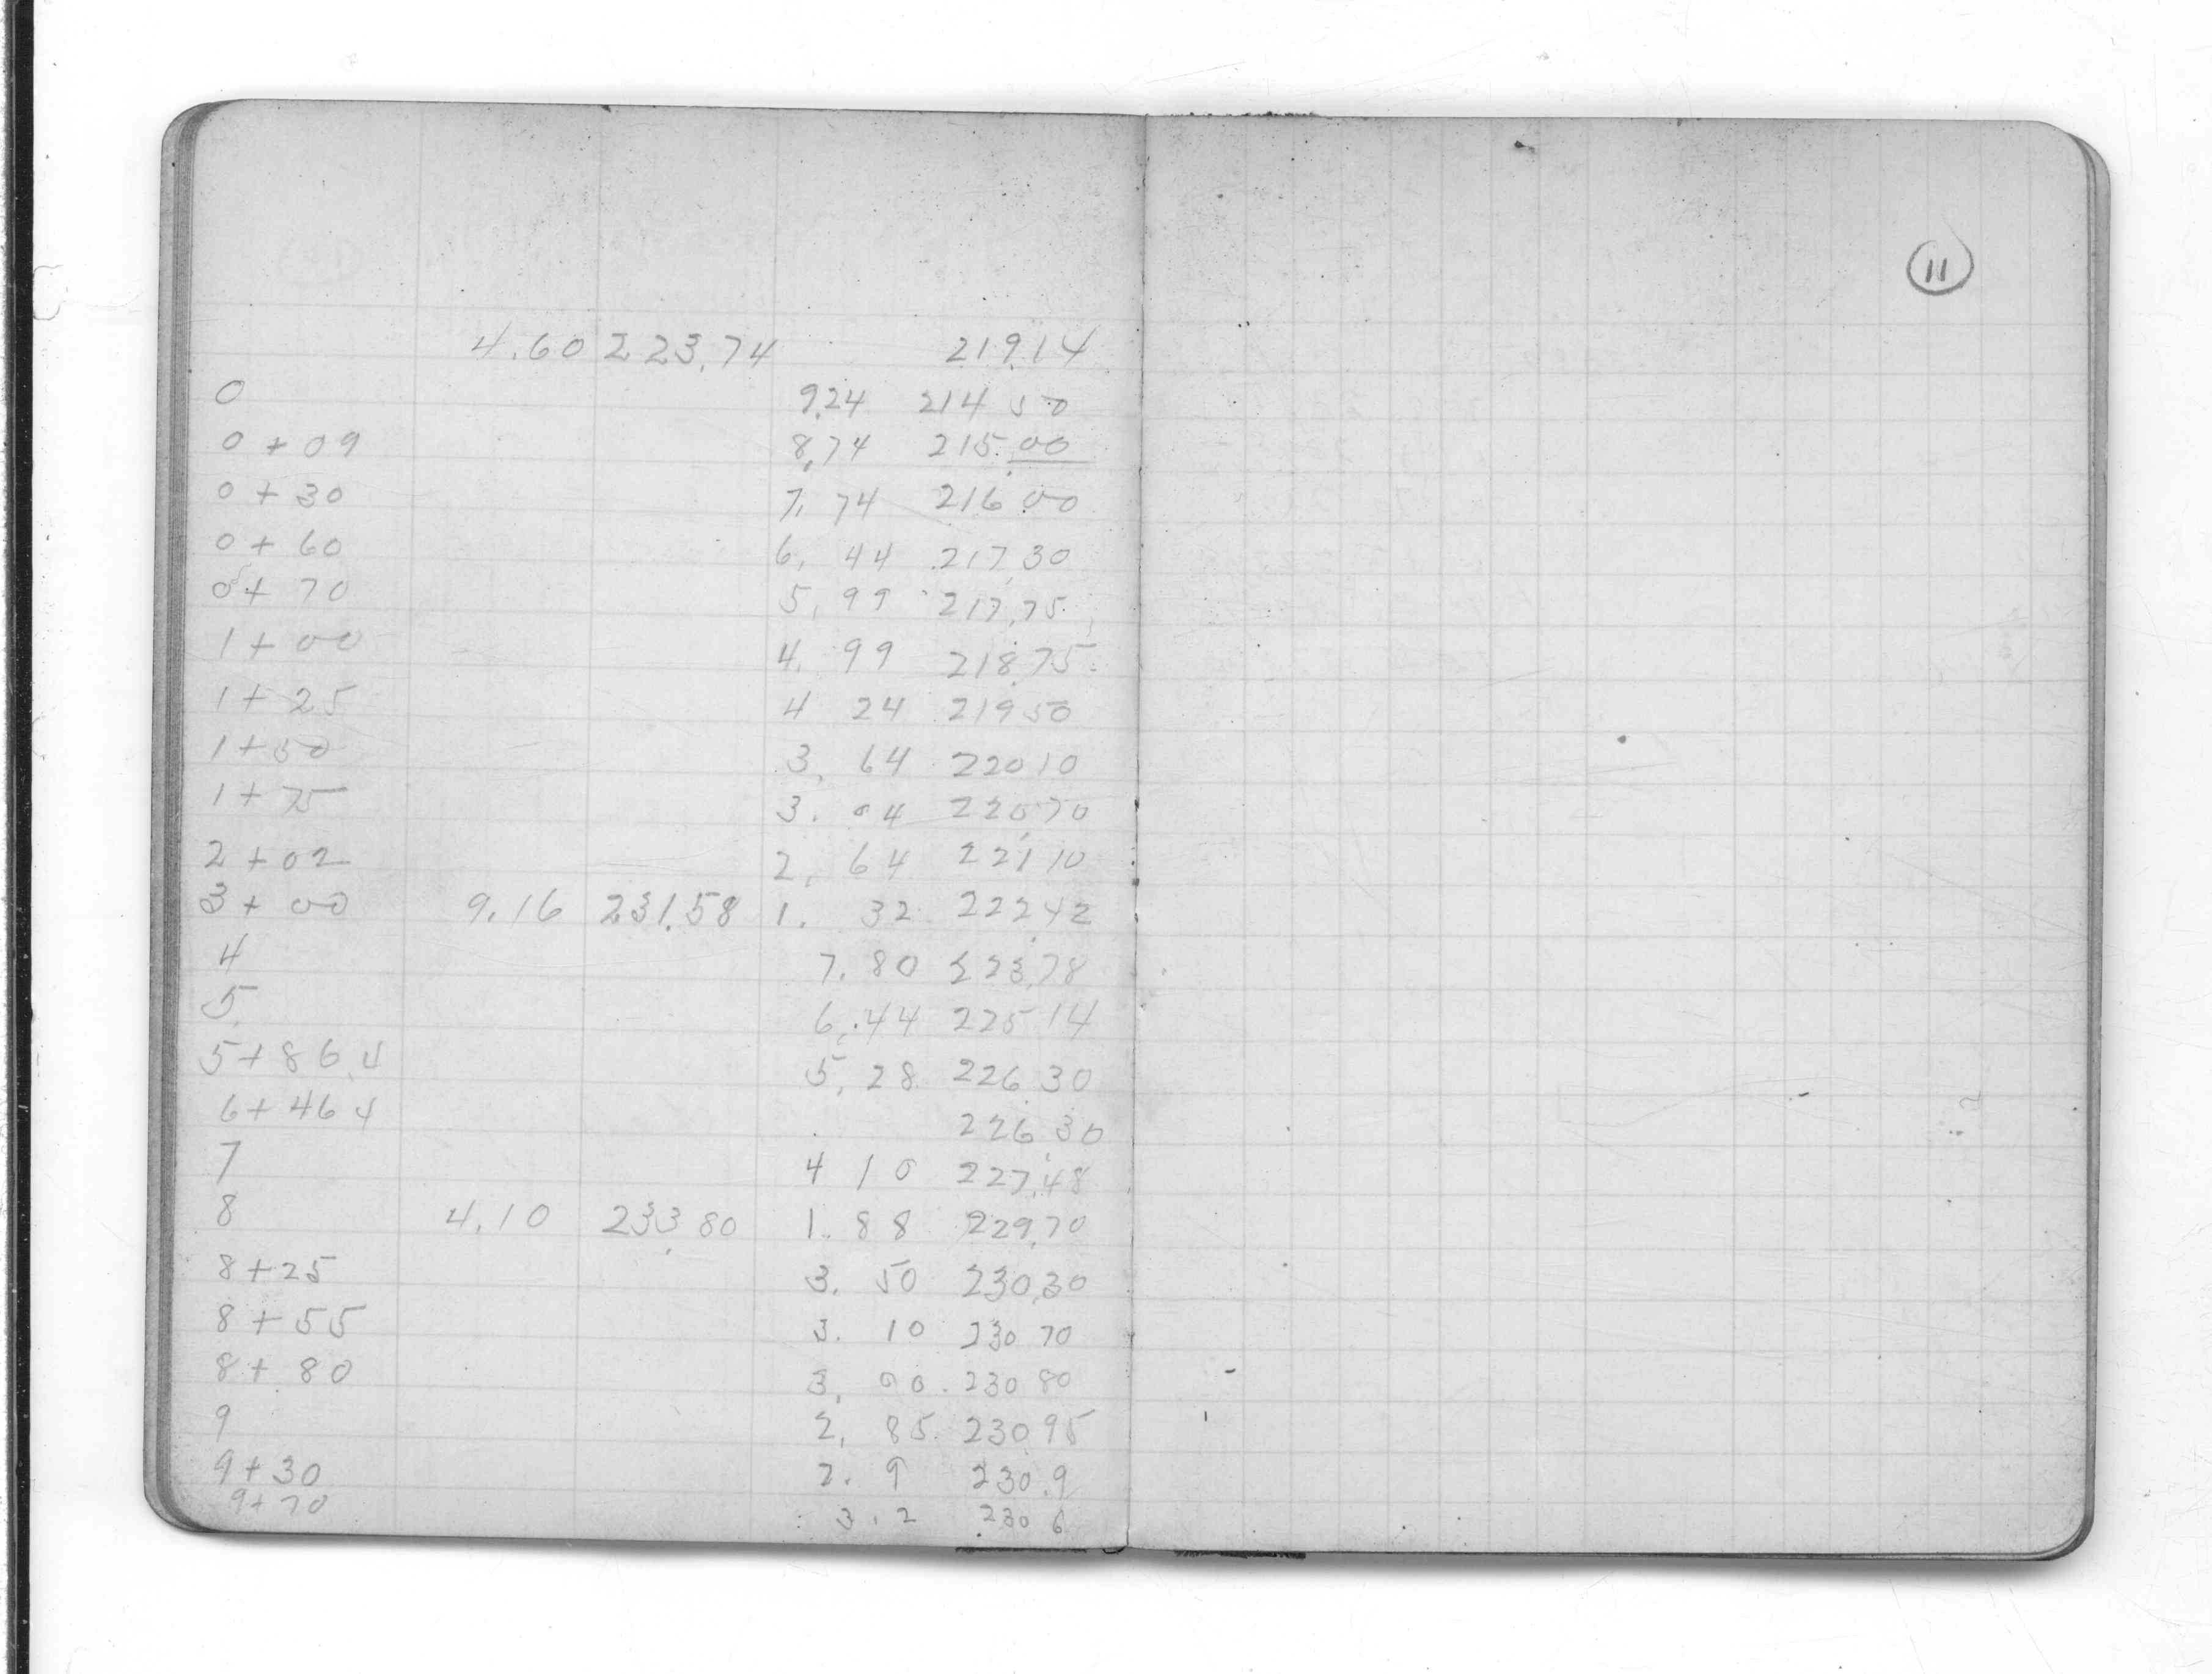 4.60 223.74 219.14
0 9.24 214 50
0 + 09 8.74 215.00
0 + 30 7. 74 216.00
0 + 60 6. 44 217.30
0+ 70 5. 99 217.75
1 + 00 4. 99 218.75
1 + 25 4 24 219 50
1 + 50 3. 64 220 10
1 + 75 3. 04 220.70
2 + 02 2. 64 221 10
3 + 00 9.16 231.58 1. 32 222.42
4 7. 80 223.78
5 6. 44 225 14
5+86.4 5. 28 226.30
6+46 4 226 30
7 4 10 227.48
8 4.10 233.80 1. 88 229.70
8+25 3. 50 230.30
8 + 55 3. 10 230 70
8 + 80 3. 00 230 80
9 2. 85 230.95
9+30 2. 9 230.9
9+ 70 3.2 230 6
11